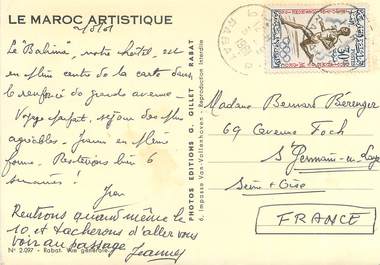 LE MAROC ARTISTIQUE
Le "Balima", notre hôtel, est
en plein centre de la carte dans
le renfoncé du grande avenue -
Voyage parfait, séjour des plus
agréables. Jeanne en pleine
forme. Resterions bien 6
semaines!
Rentrons quand même le
10 et tacherons d'aller vous
voir au passage Jeanne
N° 2.097 - Rabat - Vue générale
PHOTOS EDITIONS G. GILLET RABAT
6, Impasse Van-Vollenhoven - Reproduction Interdite
RABAT
Madame Bernard Bérenger
69 Avenue Foch
St Germain-en-Laye
Seine & Oise
FRANCE